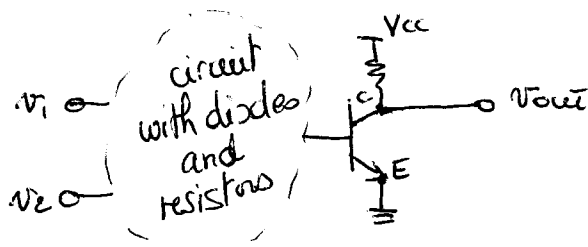 Vcc
circuit
with diodes
and
resistors
v1
v2
C
E
Vout